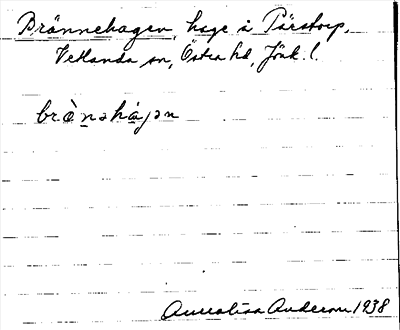 Brännehagen, hage i Pärstorp,
Vetlanda sn, Östra hd, Jönk. l.
brä̀nəhájən
Annalisa Anderson 1938